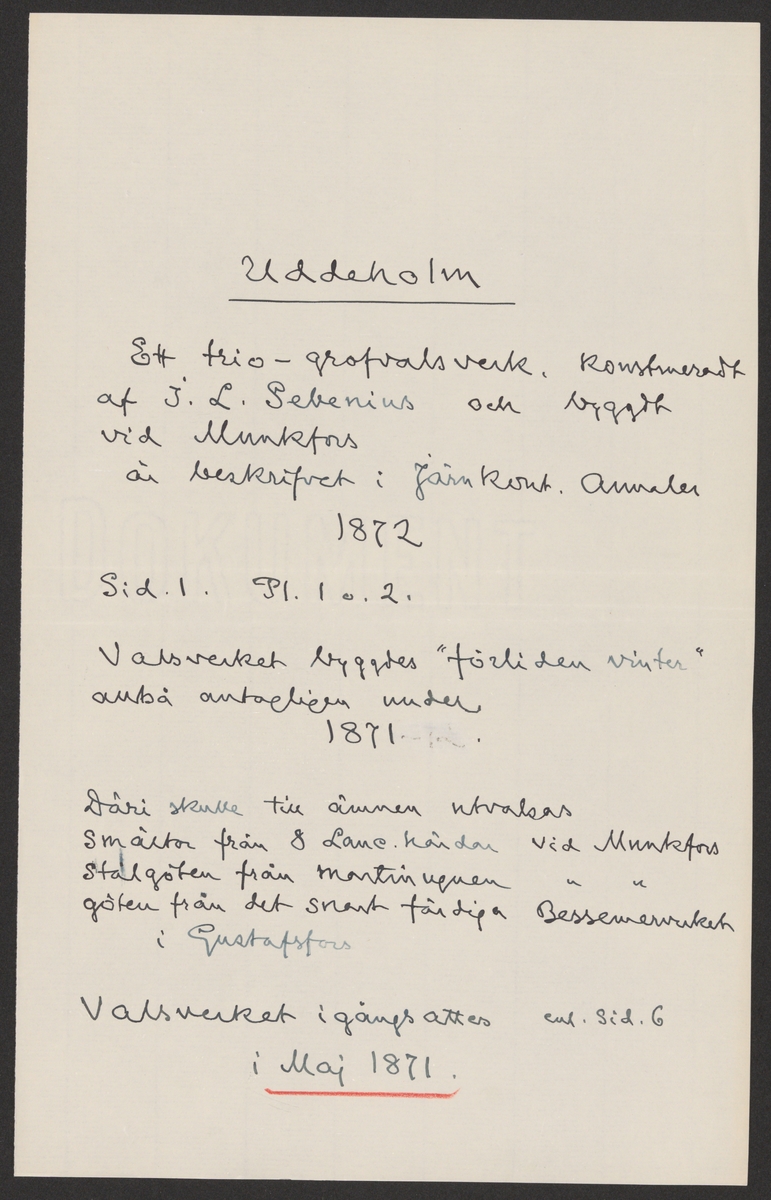 Uddeholm
Ett trio-grofvalsverk, konstrueradt
af J. L. Sebenius och byggdt
vid Munkfors
är beskrifvet i Järnkont. Annaler
1872
Sid. 1. Pl. 1 o. 2.
Valsverket byggdes "förliden vinter"
alltså antagligen under
1871
Däri skulle till ämnen utvalsas
Smältor från 8 Lanc. härdar vid Munkfors
Stålgöten från martinugnen " "
göten från det snart färdiga Bessemerverket
i Gustafsfors
Valsverket igångsattes enl. Sid. 6
i Maj 1871.